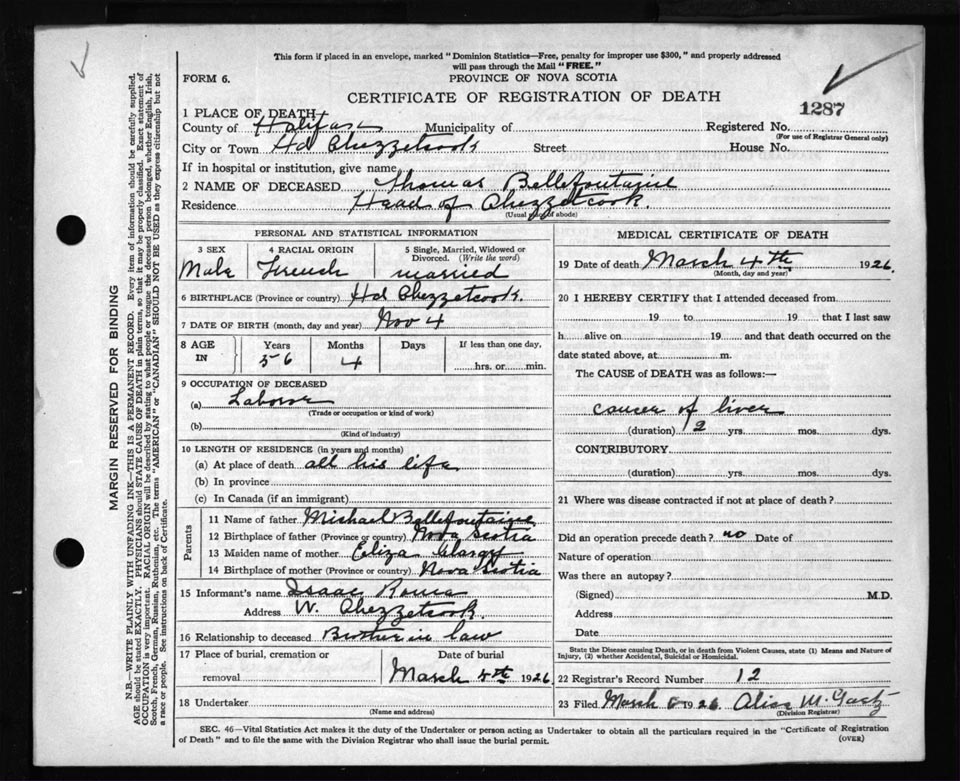 This form if placed in an envelope, marked "Dominion Statistics—Free, penalty for improper use $300," and properly addressed
will pass through the Mail "FREE."
FORM 6.
PROVINCE OF NOVA SCOTIA
CERTIFICATE OF REGISTRATION OF DEATH
1287
1 PLACE OF DEATH
County of Halifax Municipality of Registered No.
(For use of Registrar General only)
City or Town Hd Chezzetcook Street House No.
If in hospital or institution, give name
2 NAME OF DECEASED Thomas Bellefontaine
Residence Head of Chezzetcook.
(Usual place of abode)
PERSONAL AND STATISTICAL INFORMATION
3 SEX
Male
4 RACIAL ORIGIN
French
5 Single, Married, Widowed or
Divorced. (Write the word)
married
6 BIRTHPLACE (Province or country) Hd Chezzetcook.
7 DATE OF BIRTH (month, day and year) Nov 4
8 AGE
IN
Years
56
Months
4
Days
If less than one day,
hrs. or min.
9 OCCUPATION OF DECEASED
(a) Laborer
(Trade or occupation or kind of work)
(b)
(Kind of industry)
10 LENGTH OF RESIDENCE (in years and months)
(a) At place of death all his life
(b) In province
(c) In Canada (if an immigrant)
Parents
11 Name of father Michael Bellefontaine
12 Birthplace of father (Province or country) Nova Scotia
13 Maiden name of mother Eliza
14 Birthplace of mother (Province or country) Nova Scotia
15 Informant's name Isaac Roma
Address W. Chezzetcook.
16 Relationship to deceased Brother in law
17 Place of burial, cremation or
removal
Date of burial
March 4th 1926
18 Undertaker
(Name and address)
MEDICAL CERTIFICATE OF DEATH
19 Date of death March 4th 1926.
(Month, day and year)
20 I HEREBY CERTIFY that I attended deceased from
19 to 19 that I last saw
h alive on 19 and that death occurred on the
date stated above, at m.
The CAUSE of DEATH was as follows:—
cancer of liver
(duration) 2 yrs. mos. dys.
CONTRIBUTORY
(duration) yrs. mos. dys.
21 Where was disease contracted if not at place of death?
Did an operation precede death? no Date of
Nature of operation
Was there an autopsy?
(Signed) M.D.
Address
Date
State the Disease causing Death, or in death from Violent Causes, state (1) Means and Nature of
Injury, (2) whether Accidental, Suicidal or Homicidal.
22 Registrar's Record Number 12
23 Filed March 5 1926 Alice M
(Division Registrar)
SEC. 46—Vital Statistics Act makes it the duty of the Undertaker or person acting as Undertaker to obtain all the particulars required in the "Certificate of Registration
of Death" and to file the same with the Division Registrar who shall issue the burial permit.
(OVER)
MARGIN RESERVED FOR BINDING
N.B.—WRITE PLAINLY WITH UNFADING INK—THIS IS A PERMANENT RECORD. Every item of information should be carefully supplied.
AGE should be stated EXACTLY. PHYSICIANS should STATE CAUSE OF DEATH in plain terms, so that it may be properly classified. Exact statement of
OCCUPATION is very important. RACIAL ORIGIN will be described by stating to what people or tongue the deceased person belonged, whether English, Irish,
Scotch, French, German, Russian, Ruthenian, etc. The terms "AMERICAN" or "CANADIAN" SHOULD NOT BE USED as they express citizenship but not
a race or people. See instructions on back of Certificate.